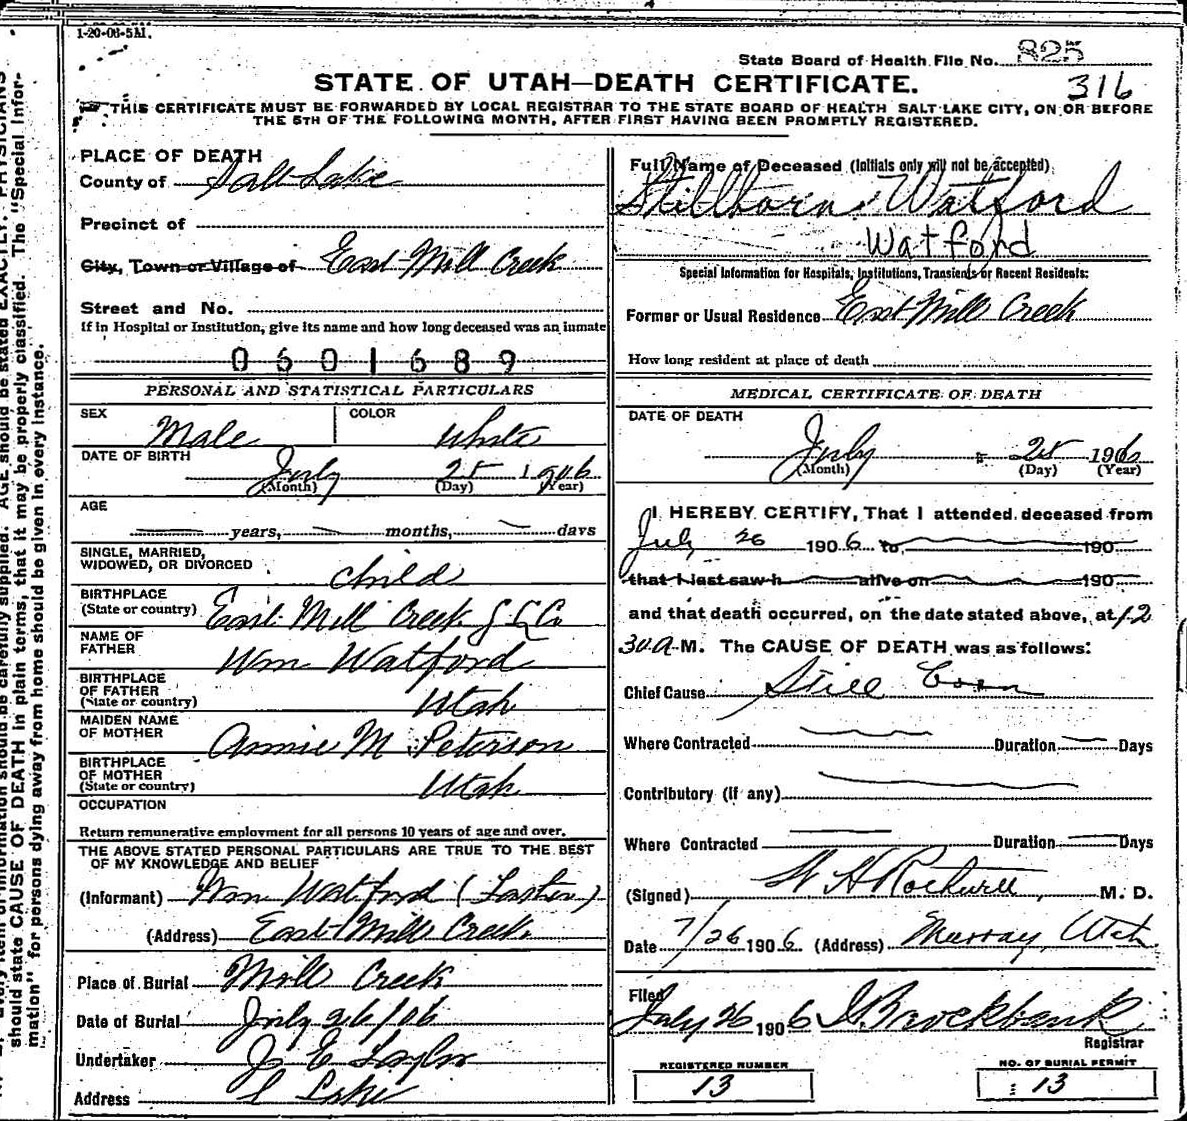 1-20-06-5M.
State Board of Health File No. 825
316
STATE OF UTAH—DEATH CERTIFICATE.
THIS CERTIFICATE MUST BE FORWARDED BY LOCAL REGISTRAR TO THE STATE BOARD OF HEALTH SALT LAKE CITY, ON OR BEFORE
THE 5TH OF THE FOLLOWING MONTH, AFTER FIRST HAVING BEEN PROMPTLY REGISTERED.
PLACE OF DEATH
County of Salt Lake
Precinct of
City, Town or Village of East Mill Creek
Street and No.
If in Hospital or Institution, give its name and how long deceased was an inmate
0601689
Full Name of Deceased (Initials only will not be accepted)
Stillborn Watford
Watford
Special Information for Hospitals, Institutions, Transients or Recent Residents:
Former or Usual Residence East Mill Creek
How long resident at place of death
PERSONAL AND STATISTICAL PARTICULARS
SEX Male COLOR White
DATE OF BIRTH
July 25 1906
(Month) (Day) (Year)
AGE
years, months, days
SINGLE, MARRIED,
WIDOWED, OR DIVORCED child
BIRTHPLACE
(State or country) East Mill Creek S L Co
NAME OF
FATHER Wm Watford
BIRTHPLACE
OF FATHER
(State or country) Utah
MAIDEN NAME
OF MOTHER Annie M Peterson
BIRTHPLACE
OF MOTHER
(State or country) Utah
OCCUPATION
Return remunerative employment for all persons 10 years of age and over.
THE ABOVE STATED PERSONAL PARTICULARS ARE TRUE TO THE BEST
OF MY KNOWLEDGE AND BELIEF
(Informant) Wm Watford (Father)
(Address) East Mill Creek
Place of Burial Mill Creek
Date of Burial July 26/06
Undertaker J E Taylor
Address S Lake
MEDICAL CERTIFICATE OF DEATH
DATE OF DEATH
July 25 1906
(Month) (Day) (Year)
I HEREBY CERTIFY, That I attended deceased from
July 26 1906 to 190
that I last saw h alive on 190
and that death occurred, on the date stated above, at 12
30 A M. The CAUSE OF DEATH was as follows:
Chief Cause Still Born
Where Contracted Duration Days
Contributory (if any)
Where Contracted Duration Days
(Signed) W H Rockwell, M. D.
Date 7/26 1906 (Address) Murray, Utah
Filed
July 26 1906 Brockbank
Registrar
REGISTERED NUMBER
13
NO. OF BURIAL PERMIT
13
should state CAUSE OF DEATH in plain terms, that it may be properly classified. The "Special Infor-
mation" for persons dying away from home should be given in every instance.